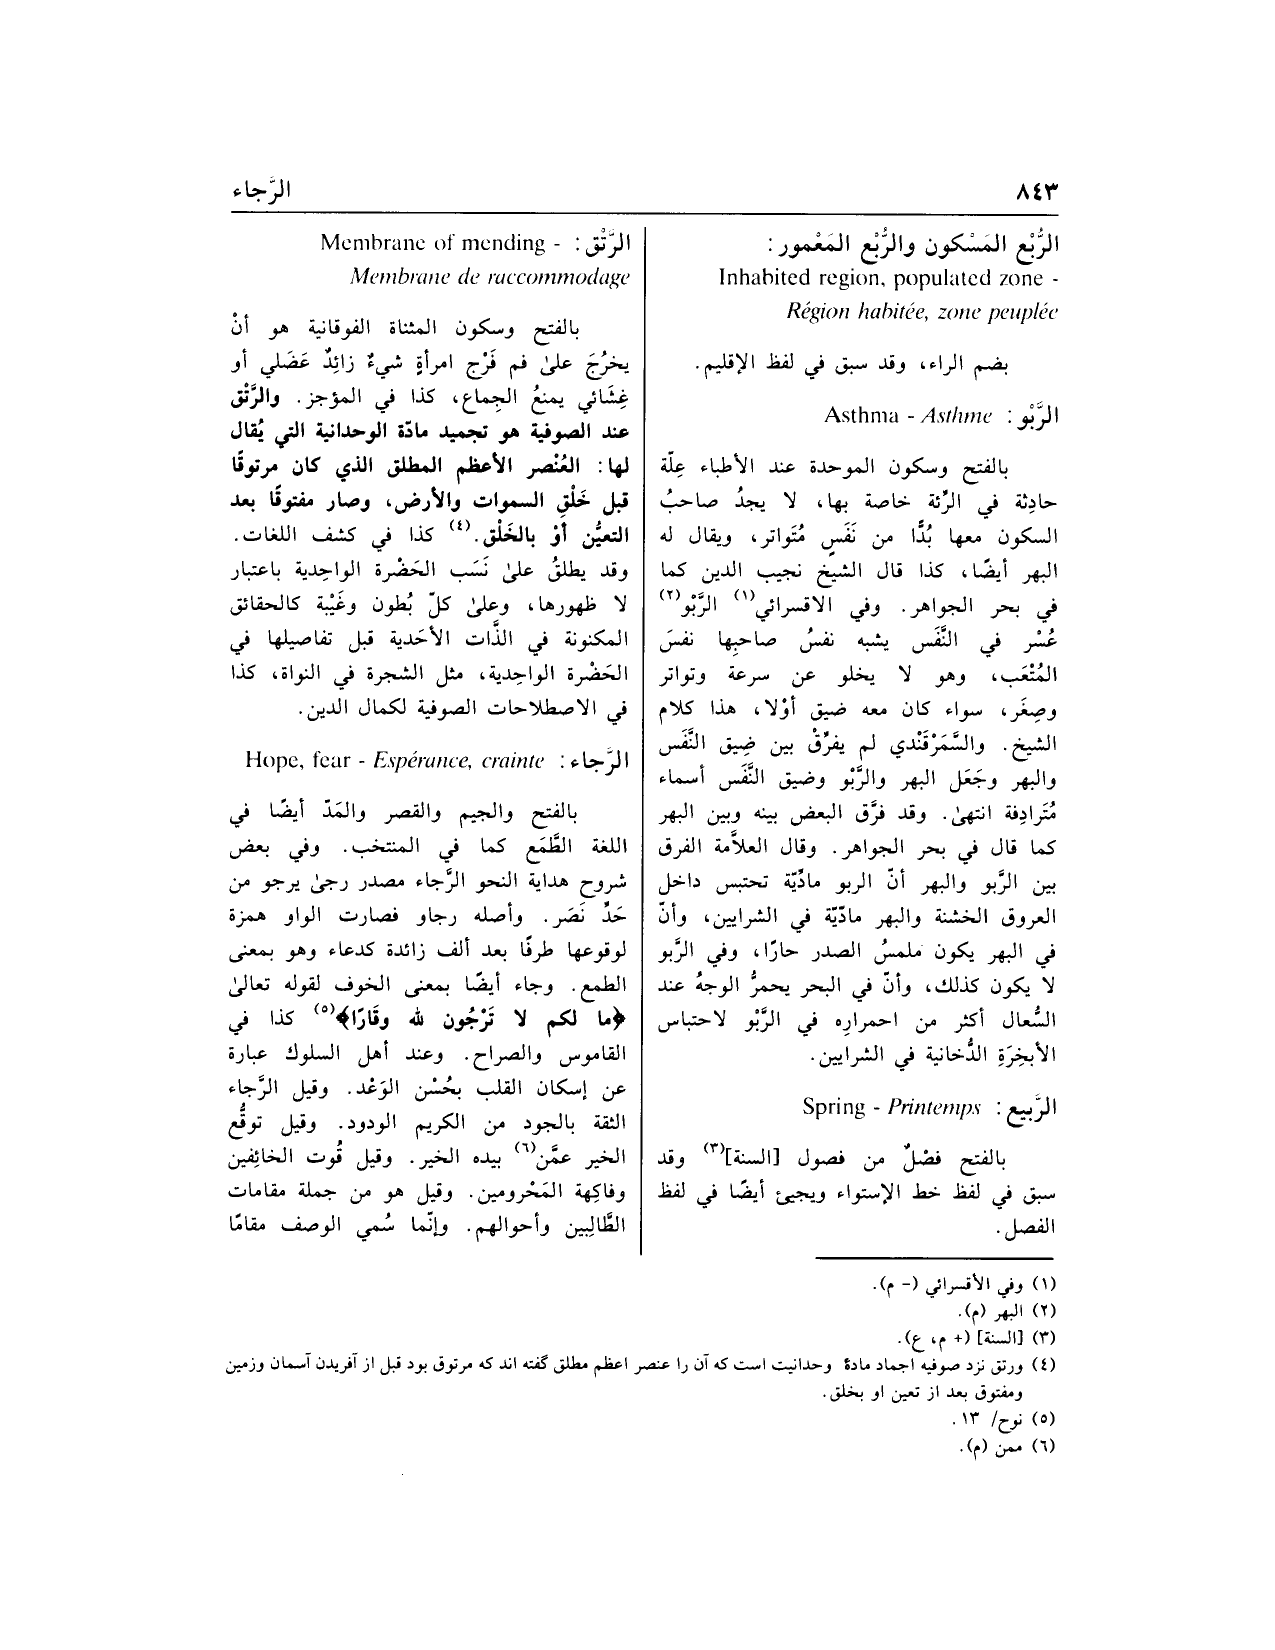 ٨٤٣
الرَّجاء
الرُّبْع المَسْكون والرُّبْع المَعْمور :
Inhabited region, populated zone -
Région habitée, zone peuplée
بضم الراء، وقد سبق في لفظ الإقليم.
الرَّبْو : Asthma - Asthme
بالفتح وسكون الموحدة عند الأطباء عِلّة
حادِثة في الرِّئة خاصة بها، لا يجدُ صاحبُ
السكون معها بُدًّا من نَفَسٍ مُتَواتر، ويقال له
البهر أيضًا، كذا قال الشيخ نجيب الدين كما
في بحر الجواهر. وفي الاقسرائي(١) الرَّبْو(٢)
عُسْر في النَّفَس يشبه نفسُ صاحبِها نفسَ
المُتْعَب، وهو لا يخلو عن سرعة وتواتر
وصِغَر، سواء كان معه ضيق أوْلا، هذا كلام
الشيخ. والسَّمَرْقَندي لم يفرِّقْ بين ضِيق النَّفَس
والبهر وجَعَل البهر والرَّبْو وضيق النَّفَس أسماء
مُتَرادِفة انتهىٰ. وقد فرَّق البعض بينه وبين البهر
كما قال في بحر الجواهر. وقال العلاَّمة الفرق
بين الرَّبو والبهر أنّ الربو مادِّيّة تحتبس داخل
العروق الخشنة والبهر مادّيّة في الشرايين، وأنّ
في البهر يكون ملمسُ الصدر حارًا، وفي الرَّبو
لا يكون كذلك، وأنّ في البحر يحمرُّ الوجهُ عند
السُّعال أكثر من احمرارِه في الرَّبْو لاحتباس
الأبخِرَةِ الدُّخانية في الشرايين.
الرَّبيع : Spring - Printemps
بالفتح فضْلٌ من فصول [السنة](٣) وقد
سبق في لفظ خط الإستواء ويجيئ أيضًا في لفظ
الفصل.
الرَّتْق : Membrane of mending -
Membrane de raccommodage
بالفتح وسكون المثناة الفوقانية هو أنْ
يخرُجَ علىٰ فم فَرْج امرأةٍ شيءٌ زائِدٌ عَضَلي أو
غِشَائي يمنعُ الجِماع، كذا في المؤجز. والرَّتْق
عند الصوفية هو تجميد مادّة الوحدانية التي يُقال
لها: العُنْصر الأعظم المطلق الذي كان مرتوقًا
قبل خَلْقِ السموات والأرض، وصار مفتوقًا بعد
التعيُّن أوْ بالخَلْق.(٤) كذا في كشف اللغات.
وقد يطلقُ علىٰ نَسَب الحَضْرة الواحِدية باعتبار
لا ظهورها، وعلىٰ كلّ بُطون وغَيْبة كالحقائق
المكنونة في الذَّات الأحَدية قبل تفاصيلها في
الحَضْرة الواحِدية، مثل الشجرة في النواة، كذا
في الاصطلاحات الصوفية لكمال الدين.
الرَّجاء : Hope, fear - Espérance, crainte
بالفتح والجيم والقصر والمَدّ أيضًا في
اللغة الطَّمَع كما في المنتخب. وفي بعض
شروح هداية النحو الرَّجاء مصدر رجىٰ يرجو من
حَدِّ نَصَر. وأصله رجاو فصارت الواو همزة
لوقوعها طرفًا بعد ألف زائدة كدعاء وهو بمعنى
الطمع. وجاء أيضًا بمعنى الخوف لقوله تعالىٰ
﴿ما لكم لا تَرْجُون لله وقَارًا﴾(٥) كذا في
القاموس والصراح. وعند أهل السلوك عبارة
عن إسكان القلب بحُسْن الوَعْد. وقيل الرَّجاء
الثقة بالجود من الكريم الودود. وقيل توقُّع
الخير عمَّن(٦) بيده الخير. وقيل قُوت الخائِفين
وفاكِهة المَحْرومين. وقيل هو من جملة مقامات
الطَّالِبين وأحوالهم. وإنّما سُمي الوصف مقامًا
(١) وفي الأقسرائي (- م).
(٢) البهر (م).
(٣) [السنة] (+ م، ع).
(٤) ورتق نزد صوفيه اجماد مادۀ وحدانيت است كه آن را عنصر اعظم مطلق گفته اند كه مرتوق بود قبل از آفريدن آسمان وزمين
ومفتوق بعد از تعين او بخلق.
(٥) نوح/ ١٣.
(٦) ممن (م).